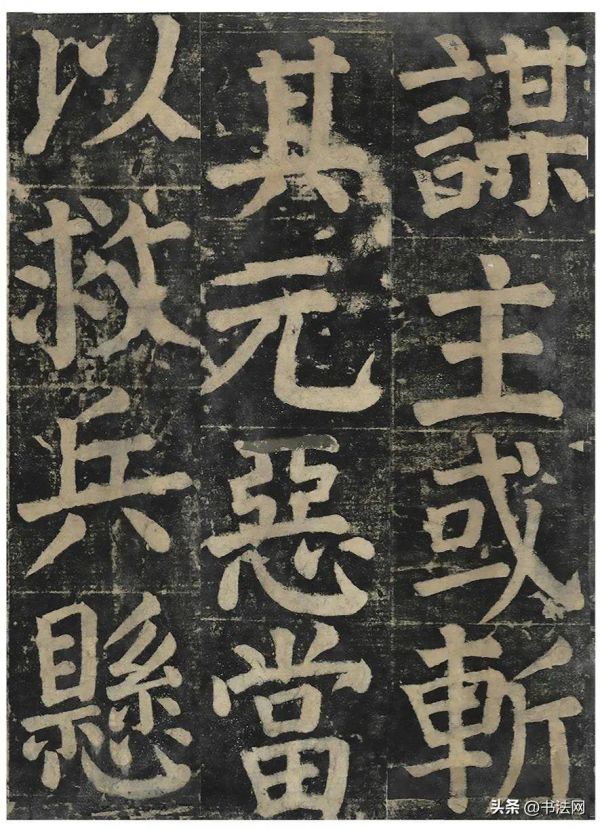 謀主或斬
其元惡當
以救兵懸
头条 @书法网